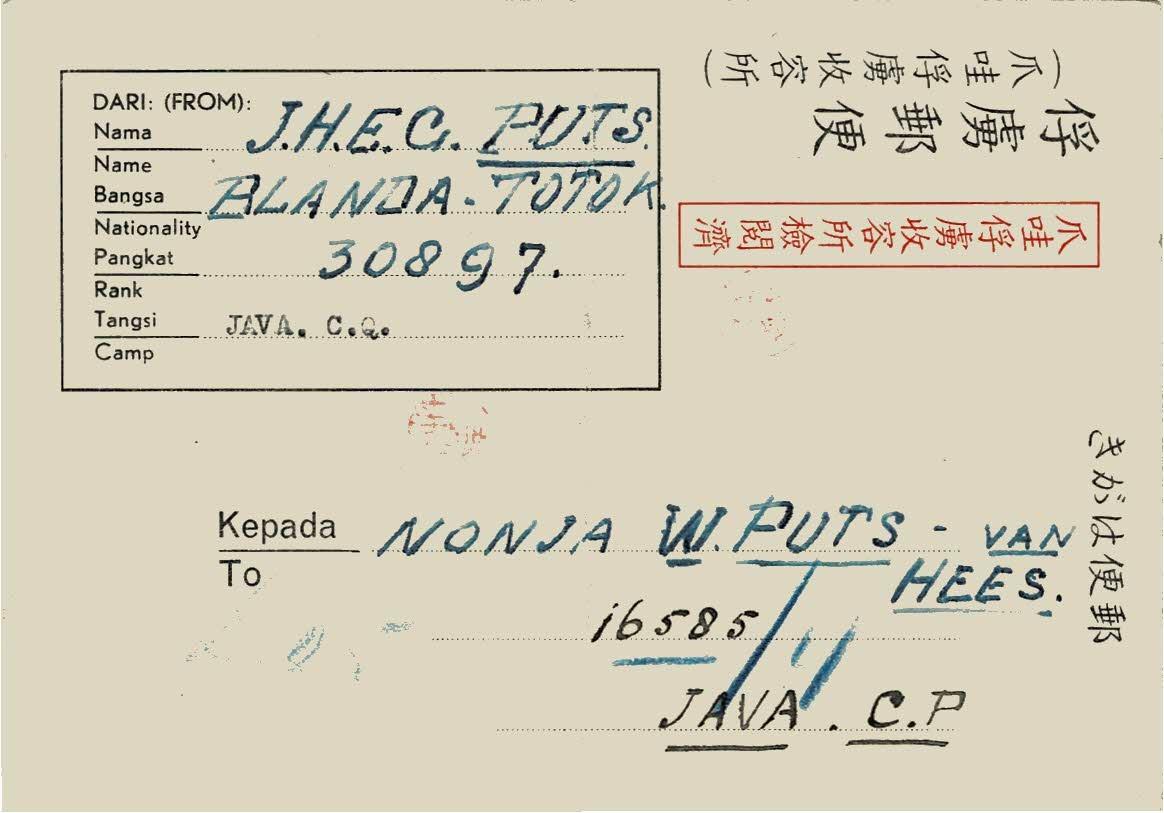 DARI: (FROM):
Nama J.H.E.C. PUTS.
Name
Bangsa BLANDA-TOTOK.
Nationality
Pangkat 30897.
Rank
Tangsi JAVA. C.Q.
Camp
(爪哇俘虜收容所)
俘虜郵便
爪哇俘虜收容所檢閱濟
郵便はがき
Kepada NONJA W. PUTS - VAN
To HEES.
16585
JAVA. C.P